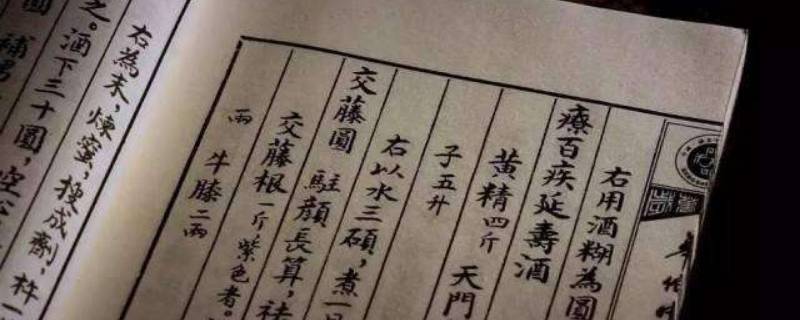 右用酒糊為圓
療百疾延壽酒
黃精四斤 天門
子五升
右以水三碩，煮一
交藤圓 駐顏長算，祛
交藤根一斤，紫色者。
兩 牛膝二兩
右為末，煉蜜，搜成劑，杵一
之。酒下三十圓，空
圓 補